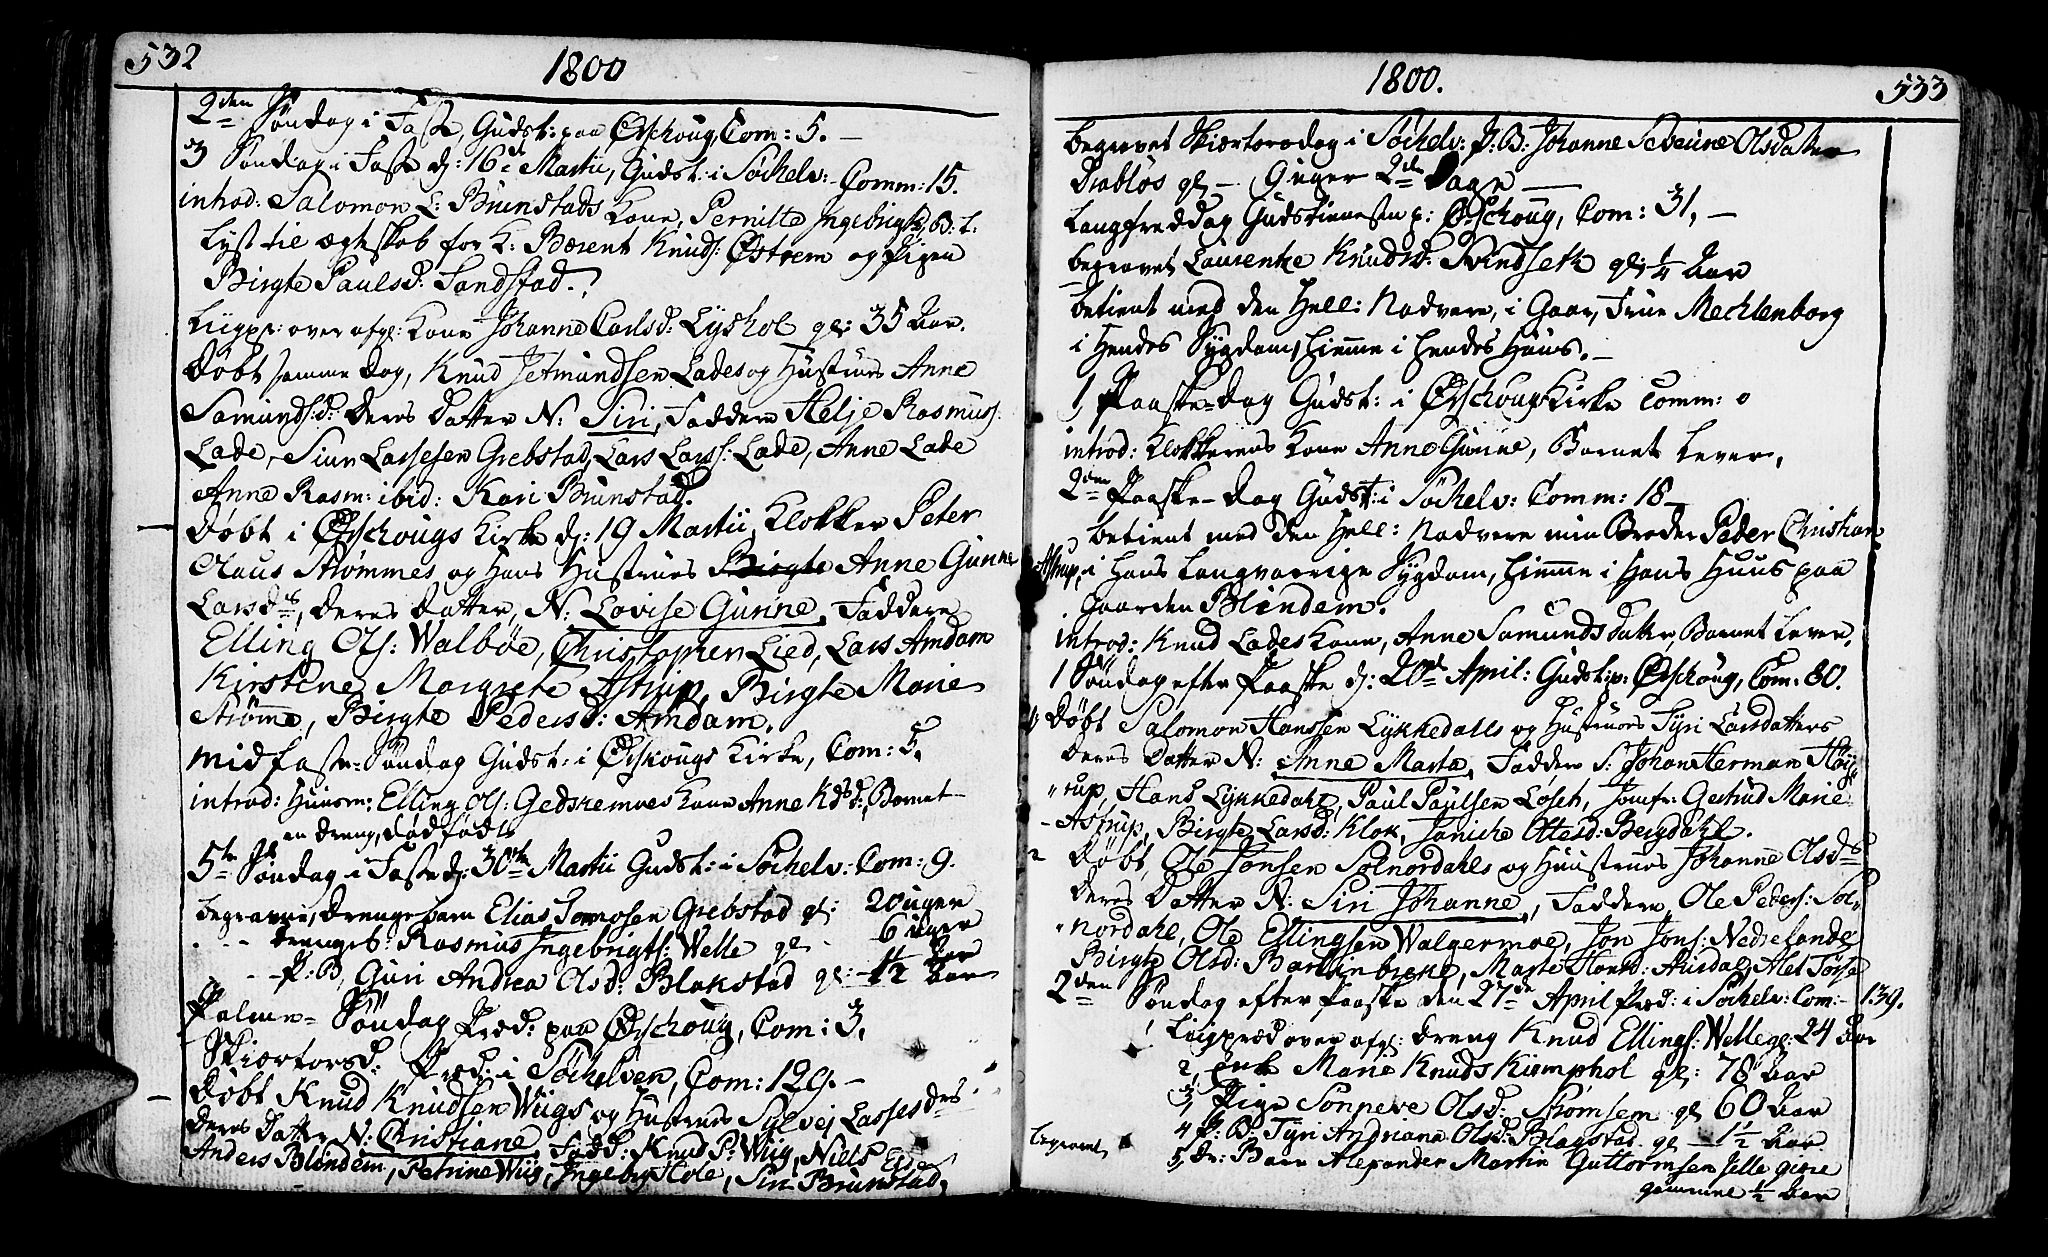 532
1800
2den Søndag i Faste, Gudst: paa Ørschoug, Com: 5. —
3 Søndag i Faste d: 16de Martii, Gudst: i Søchelv: — Comm: 15.
introd: Salomon L: Brunstads Kone, Pernille Ingebrigts, B: l:
Lyst til ægteskab for K: Bærent Knuds: Østrem og Pigen
Birgte Paulsd: Sandstad.
Liigpr: over afg: Kone Johanne Carlsd: Lyshol gl: 35 Aar.
Døbt samme Dag, Knud Jetmundsen Lades og Hustrues Anne
Samundsd: deres Datter N: Siri, Faddere Helje Rasmuss:
Lade, Siur Lassesen Grebstad, Lars Larss: Lade, Anne Lade
Anne Rasm: ibid: Kari Brunstad.
Døbt i Ørschougs Kirke d: 19 Martii, Klokker Peter
Olaus Strømmes og Hans Hustrues Birgte Anne Gunne
Larsd:s, deres Datter, N: Lovise Gunne, Faddere
Elling Ols: Walbøe, Christopher Lied, Lars Amdam
Kirstene Margrete Astrup, Birgte Marie
Strømme, Birgte Pedersd: Amdam.
Midfaste-Søndag Gudst: i Ørskougs Kirke, Com: 5.
introd: Huusm: Elling Ols: Gedskemoes Kone Anne Kdsd: Barnet
en dreng, dødfødt
5te Søndag i Faste d: 30te Martii Gudst: i Søchelv: Com: 9.
begravne, drengebarn Elias Jonnosen Grebstad gl: 20 uger
drengeb: Rasmus Ingebrigts: Welle gl 6 uger
P: B, Guri Andrea Olsd: Blakstad gl: 1½ Aar
Palme-Søndag Præd: paa Ørschoug, Com: 3.
Skiertorsd: Præd: i Søchelven, Com: 129. —
Døbt Knud Knudsen Wiigs og Hustrues Sylvej Lassesdes
deres Datter N: Christiane, Fadd: Knud P: Wiig, Niels
Anders Blindem, Petrine Wiig, Ingeborg Hole, Siri Brunstad,
1800.
533
begravet Skiærtorsdag i Søchelv: P: B: Johanne Severine Olsdatter
Drabløs gl — 9 uger 2de Dage —
Langfreddag Gudstienesten p: Ørschoug, Com: 31, —
begravet Laurentze Knudsd: Svindsetk gl: ¼ Aar
betient med den Hell: Nadvere, i Gaar, Frue Mechlenborg
i Hendes Sygdom, hiemme i hendes Huus. —
1 Paaske-Dag Gudst: i Ørschoug Kirke Comm: 0
introd: Klokkerens Kone Anne Gunne, Barnet lever,
2den Paaske-Dag Gudst: i Søchelv: Comm: 18 —
betient med den Hell: Nadvere min Broder Peder Christian
Astrup, i Hans langvarige Sygdom, hiemme i Hans Huus paa
Gaarden Blindem.
introd: Knud Lades Kone, Anne Samunds Datter, Barnet lever.
1 Søndag efter Paaske d: 20de April: Gudst: p: Ørschoug, Com: 80.
1, Døbt Salomon Hanssen Lykkedalls og Hustrues Syri Larsdatters
deres Datter N: Anne Marta, Faddere S: Johan Herman Høy-
rup, Hans Lykkedahl, Paul Paulsen Løset, Jomfr: Gertrud Marie
Astrup, Birgte Larsd: Klok, Janiche Ottesd: Bergdahl.
2 Døbt, Ole Jonsen Solnordahls og Huustrues Johanne Olsdes
deres Datter N: Siri Johanne, Faddere Ole Peders: Sol-
nordahl, Ole Ellingsen Walgermoe, Jon Jons: Nedrelande
Birgte Olsd: Marte Hansd: Ausdal
2den Søndag efter Paaske den 27de April Præd: i Søchelv: Com: — 139.
1 Liigpræd over afg: dreng Knud Ellings: Welle gl: 24 Aar
2, Enke Marie Knuds Kiemphol gl: 78 Aar
3, Pige Sønneve Olsd: Strømsem gl 60 Aar
begravet 4 P: B: Syri Andriana Olsd: Blagstad gl — 1½ Aar.
5, dr: Barn Alexander Martin Guttormsen
gammel ½ Aar